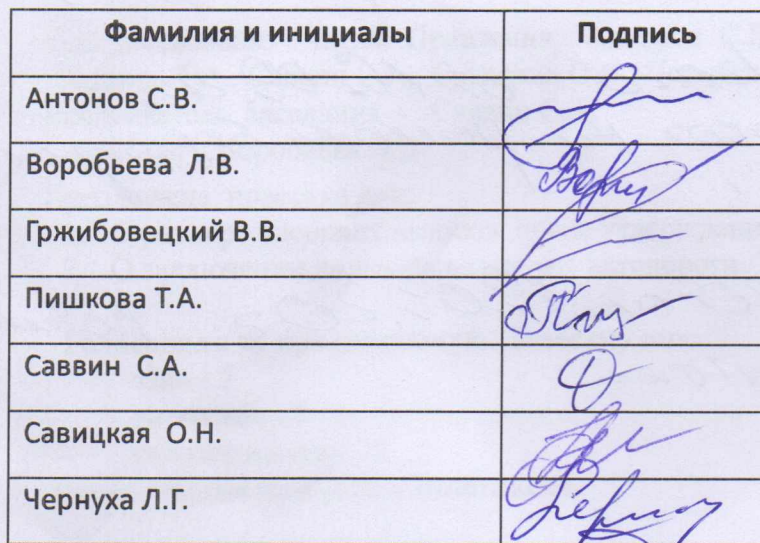 Фамилия и инициалы Подпись
Антонов С.В.
Воробьева Л.В.
Гржибовецкий В.В.
Пишкова Т.А.
Саввин С.А.
Савицкая О.Н.
Чернуха Л.Г.